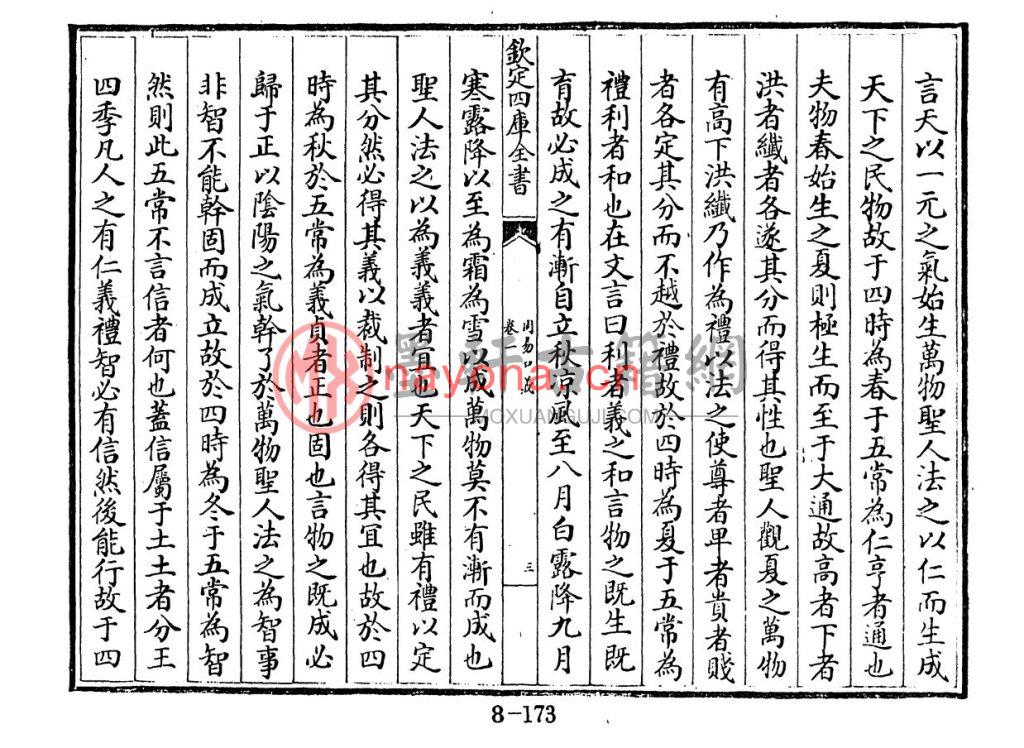 言天以一元之氣始生萬物聖人法之以仁而生成
天下之民物故于四時為春于五常為仁亨者通也
夫物春始生之夏則極生而至于大通故高者下者
洪者纖者各遂其分而得其性也聖人觀夏之萬物
有高下洪纖乃作為禮以法之使尊者卑者貴者賤
者各定其分而不越於禮故於四時為夏于五常為
禮利者和也在文言曰利者義之和言物之既生既
育故必成之有漸自立秋凉風至八月白露降九月
欽定四庫全書
周易口義
卷一
三
寒露降以至為霜為雪以成萬物莫不有漸而成也
聖人法之以為義義者宜也天下之民雖有禮以定
其分然必得其義以裁制之則各得其宜也故於四
時為秋於五常為義貞者正也固也言物之既成必
歸于正以陰陽之氣幹了於萬物聖人法之為智事
非智不能幹固而成立故於四時為冬于五常為智
然則此五常不言信者何也蓋信屬于土土者分王
四季凡人之有仁義禮智必有信然後能行故于四
墨軒古籍網
nayona.cn
MOXUANGUJI.COM
8-173